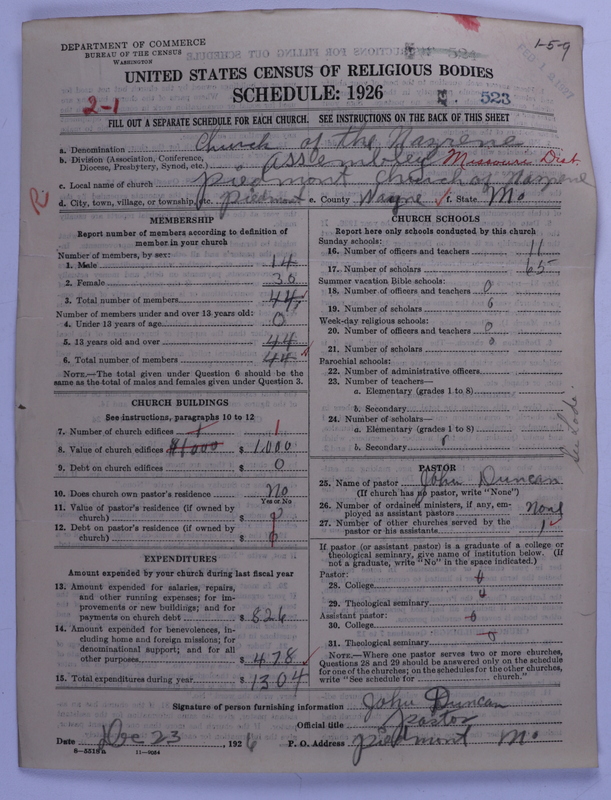 DEPARTMENT OF COMMERCE
BUREAU OF THE CENSUS
WASHINGTON
1-5-9
UNITED STATES CENSUS OF RELIGIOUS BODIES
SCHEDULE: 1926
2-1
523
FILL OUT A SEPARATE SCHEDULE FOR EACH CHURCH. SEE INSTRUCTIONS ON THE BACK OF THIS SHEET
a. Denomination Church of the Nazrene
b. Division (Association, Conference, Diocese, Presbytery, Synod, etc.) Assembley Missouri Dist.
c. Local name of church Piedmont Church of Nazrene
d. City, town, village, or township, etc. Piedmont e. County Wayne f. State Mo
MEMBERSHIP
Report number of members according to definition of
member in your church
Number of members, by sex:
1. Male 14
2. Female 30
3. Total number of members 44
Number of members under and over 13 years old:
4. Under 13 years of age 0
5. 13 years old and over 44
6. Total number of members 44
NOTE.—The total given under Question 6 should be
the same as the total of males and females given under Question 3.
CHURCH BUILDINGS
See instructions, paragraphs 10 to 12
7. Number of church edifices 1 1
8. Value of church edifices $1000 $ 1,000
9. Debt on church edifices $ 0
10. Does church own pastor's residence No
Yes or No
11. Value of pastor's residence (if owned by
church) $ 0
12. Debt on pastor's residence (if owned by
church) $ 0
EXPENDITURES
Amount expended by your church during last fiscal year
13. Amount expended for salaries, repairs,
and other running expenses; for im-
provements or new buildings; and for
payments on church debt $ 826
14. Amount expended for benevolences, in-
cluding home and foreign missions; for
denominational support; and for all
other purposes $ 478
15. Total expenditures during year $ 1304
CHURCH SCHOOLS
Report here only schools conducted by this church
Sunday schools:
16. Number of officers and teachers 11
17. Number of scholars 65
Summer vacation Bible schools:
18. Number of officers and teachers 0
19. Number of scholars 0
Week-day religious schools:
20. Number of officers and teachers 0
21. Number of scholars 0
Parochial schools:
22. Number of administrative officers
23. Number of teachers—
a. Elementary (grades 1 to 8)
b. Secondary
24. Number of scholars—
a. Elementary (grades 1 to 8)
b. Secondary
PASTOR
25. Name of pastor John Duncan
(If church has no pastor, write "None")
26. Number of ordained ministers, if any, em-
ployed as assistant pastors None
27. Number of other churches served by the
pastor or his assistants 1
If pastor (or assistant pastor) is a graduate of a college or
theological seminary, give name of institution below. (If
not a graduate, write "No" in the space indicated.)
Pastor:
28. College 0
29. Theological seminary 0
Assistant pastor:
30. College 0
31. Theological seminary 0
NOTE.—Where one pastor serves two or more churches,
Questions 28 and 29 should be answered only on the schedule
for one of the churches; on the schedules for the other churches,
write "See schedule for church."
Signature of person furnishing information John Duncan
Official title pastor
Date Dec 23, 1926 P. O. Address Piedmont Mo